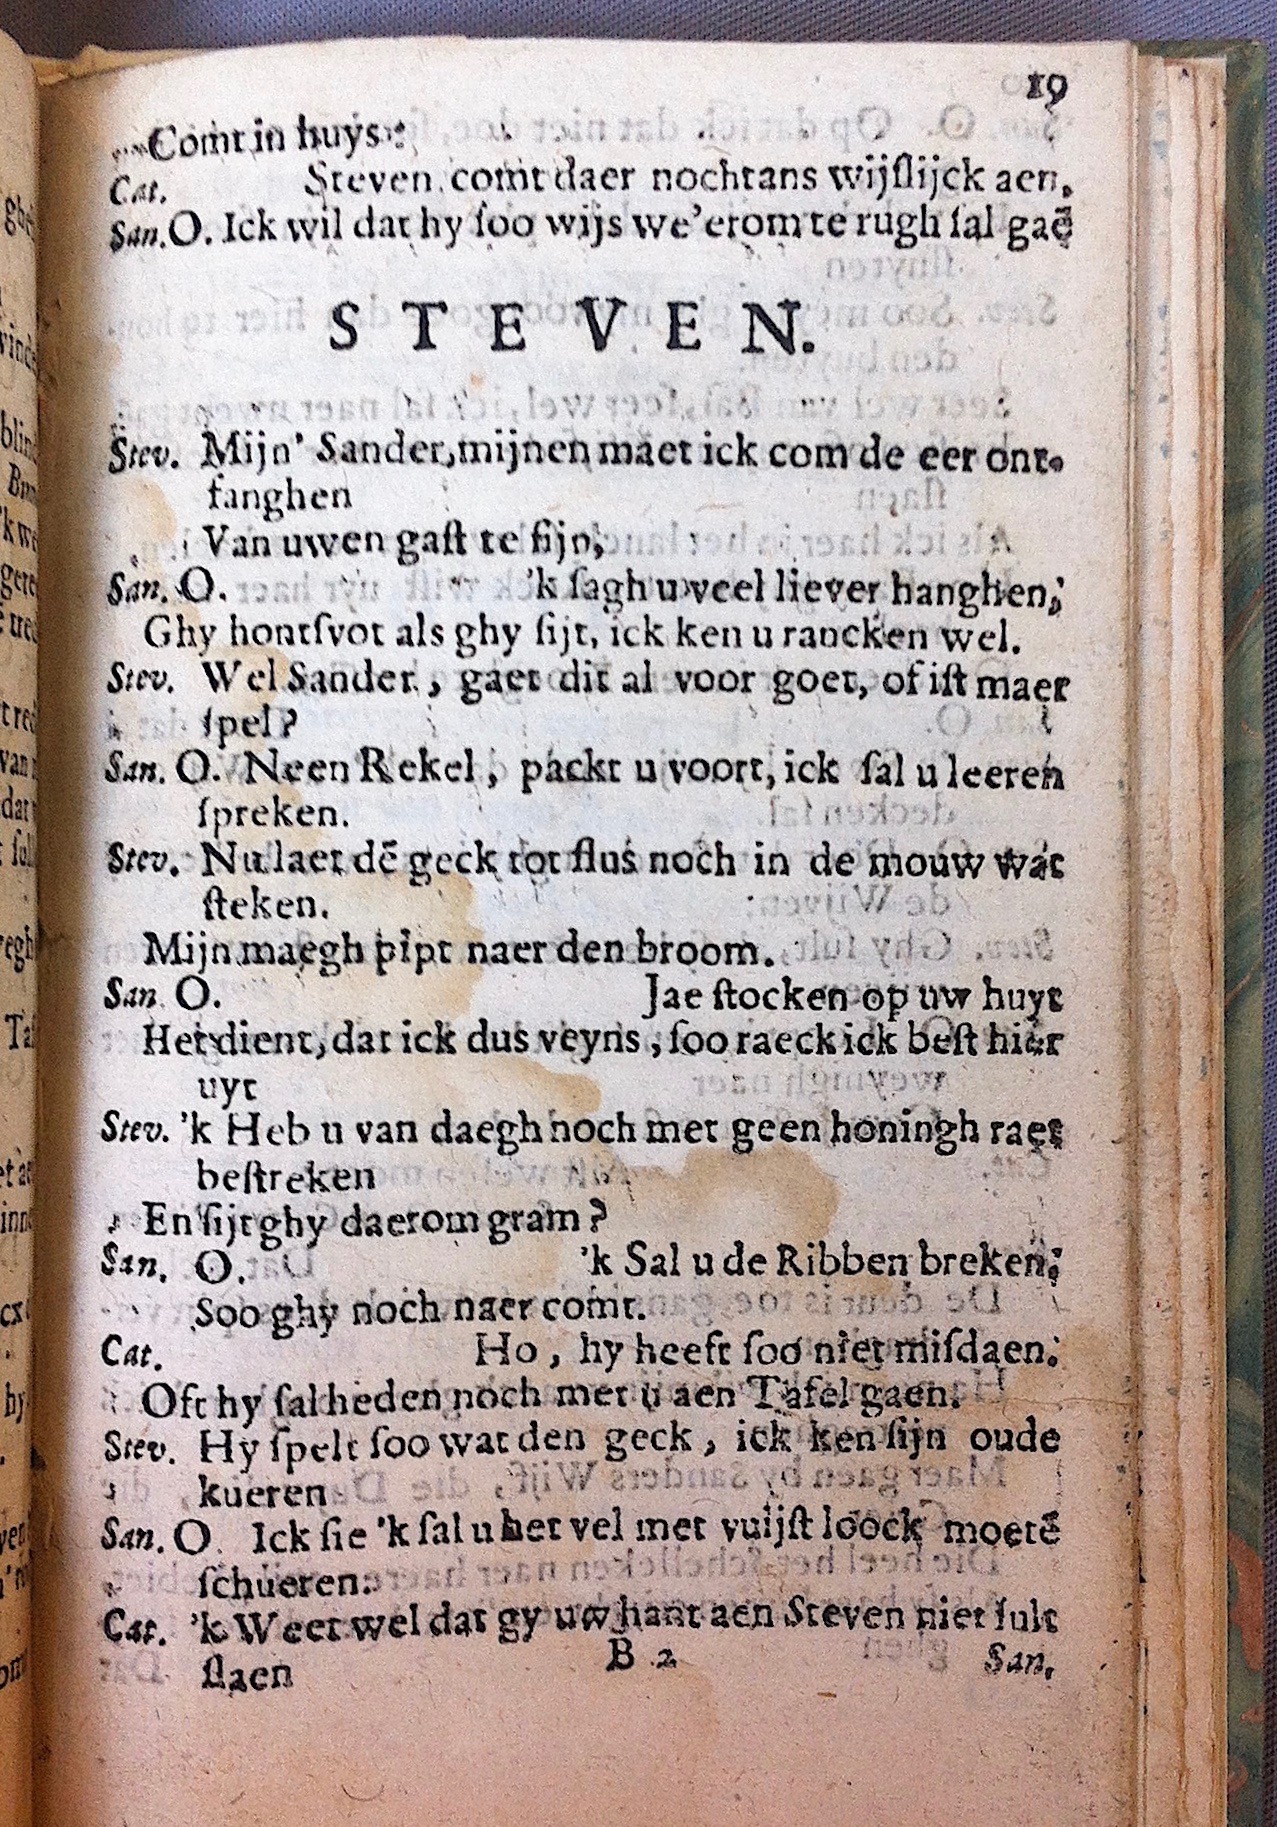 19
Comt in huys:
Cat. Steven comt daer nochtans wijſlijck aen,
San. O. Ick wil dat hy ſoo wijs we'erom te rugh ſal gaē
STEVEN.
Stev. Mijn' Sander, mijnen maet ick com de eer ont-
fanghen
Van uwen gaſt te ſijn,
San. O. 'k ſagh u veel liever hanghen;
Ghy hontſvot als ghy ſijt, ick ken u rancken wel.
Stev. Wel Sander, gaet dit al voor goet, of iſt maer
ſpel?
San. O. Neen Rekel, packt u voort, ick ſal u leeren
ſpreken.
Stev. Nu laet dē geck tot flus noch in de mouw wat
ſteken.
Mijn maegh pipt naer den broom.
San O. Jae ſtocken op uw huyt
Het dient, dat ick dus veyns, ſoo raeck ick beſt hier
uyt
Stev. 'k Heb u van daegh noch met geen honingh raet
beſtreken
En ſijt ghy daerom gram?
San. O. 'k Sal u de Ribben breken;
Soo ghy noch naer comt.
Cat. Ho, hy heeft ſoo niet miſdaen.
Oft hy ſal heden noch met u aen Tafel gaen.
Stev. Hy ſpelt ſoo wat den geck, ick ken ſijn oude
kueren
San. O. Ick ſie 'k ſal u het vel met vuijſt loock moetē
ſchueren.
Cat. 'k Weet wel dat gy uw hant aen Steven niet ſult
ſlaen
B 2 San,